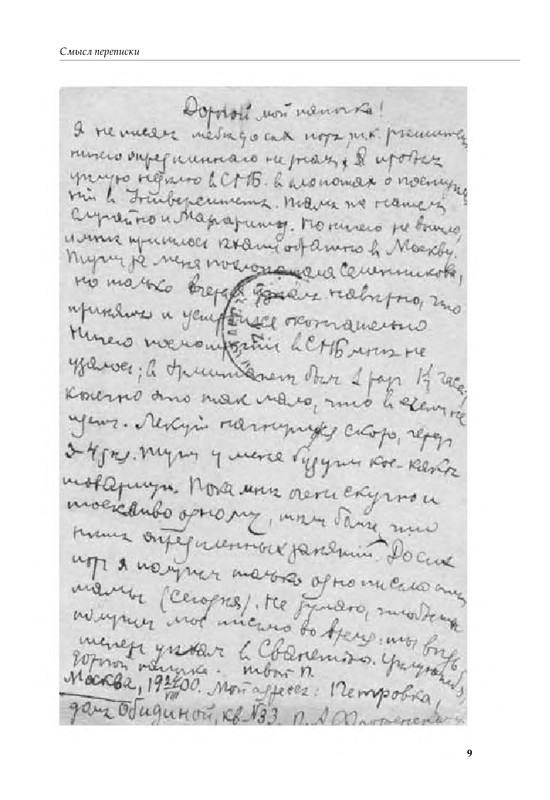 Смысл переписки
Дорогой мой папочка!
Я не писал тебе до сих пор, т.к. решител
ничего определеннаго не знал. Я провел
целую неделю в СПБ. в хлопотах о поступле
нии в Университет. Там же
случайно и Маргариту. Но ничего не вышло,
и мне пришлось ехать обратно в Москву.
Тут за меня похлопотала
но только вчера узнал наверно, что
принят и уже окончательно
Ничего посмотреть в СПБ мне не
удалось; в Эрмитаже был 1 раз 1½ часа,
конечно это так мало, что я всего не
Лекции начнутся скоро, через
3-4 дня. Тут у меня будут кое-какие
товарищи. Пока мне очень скучно и
тоскливо одному, тем более что
никаких определенных занятий. До сих
пор я получил только одно письмо от
мамы (сегодня). Не думаю, чтобы ты
получил мое письмо во время: ты ведь
теперь уехал в Сванетию. Целую тебя,
дорогой папочка. твой П.
Москва, 1900. Мой адрес: Петровка,
дом Обидиной, кв. №33. П. А. Флоренский
9